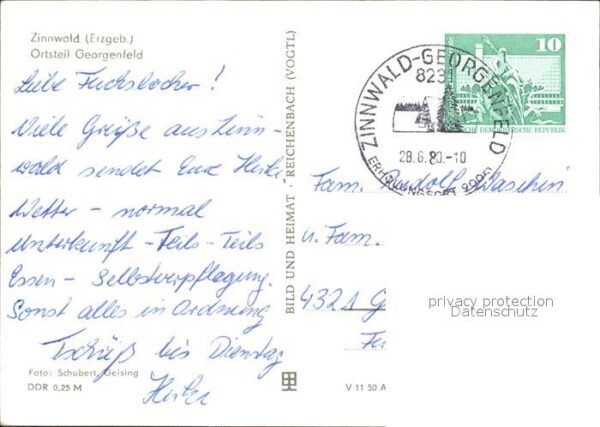 Zinnwald (Erzgeb.)
Ortsteil Georgenfeld
Liebe Fuchsbacher!
Viele Grüße aus Zinn-
wald sendet Euch
Wetter – normal
Unterkunft – Teils – Teils
Essen – Selbstverpflegung.
Sonst alles in Ordnung
Tschüß bis Dienstag
Foto: Schubert, Geising
DDR 0,25 M
BILD UND HEIMAT · REICHENBACH (VOGTL)
V 11 50 A
10
DEUTSCHE DEMOKRATISCHE REPUBLIK
ZINNWALD-GEORGENFELD
823
28.6.80.-10
ERHOLUNGSORT
Fam. Rudolf
u. Fam.
4321 G
privacy protection
Datenschutz